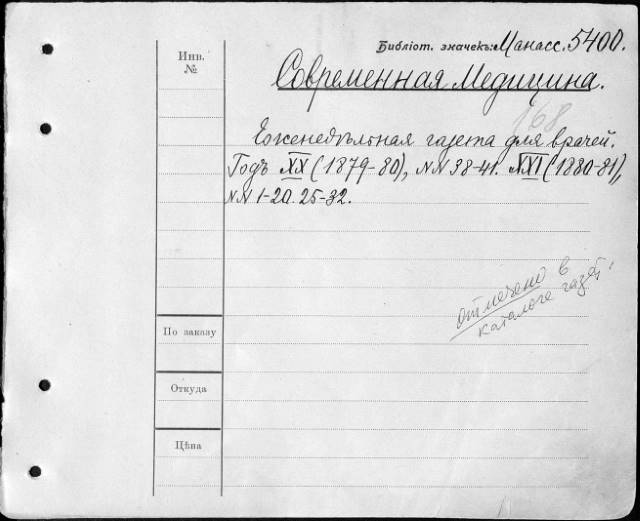 Библіот. значекъ: Манасс. 5400.
Инв.
№
Современная Медицина.
168
Еженедѣльная газета для врачей.
Годъ XX (1879-80), NN 38-41. XXI (1880-81),
NN 1-20. 25-32.
отмечено в
каталоге газет.
По заказу
Откуда
Цѣна